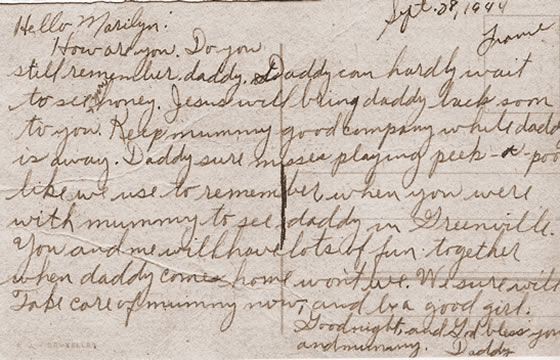 Sept. 28, 1944
Hello Marilyn:
France
How are you. Do you
still remember daddy. Daddy can hardly wait
to see honey. Jesus will bring daddy back soon
to you. Keep mummy good company while daddy
is away. Daddy sure misses playing peek-a-poo
like we use to remember when you were
with mummy to see daddy in Greenville.
You and me will have lots of fun together
when daddy comes home won't we. We sure will
Take care of mummy now, and be a good girl.
Goodnight, and God bless you
and mummy. Daddy
BRUXELLES